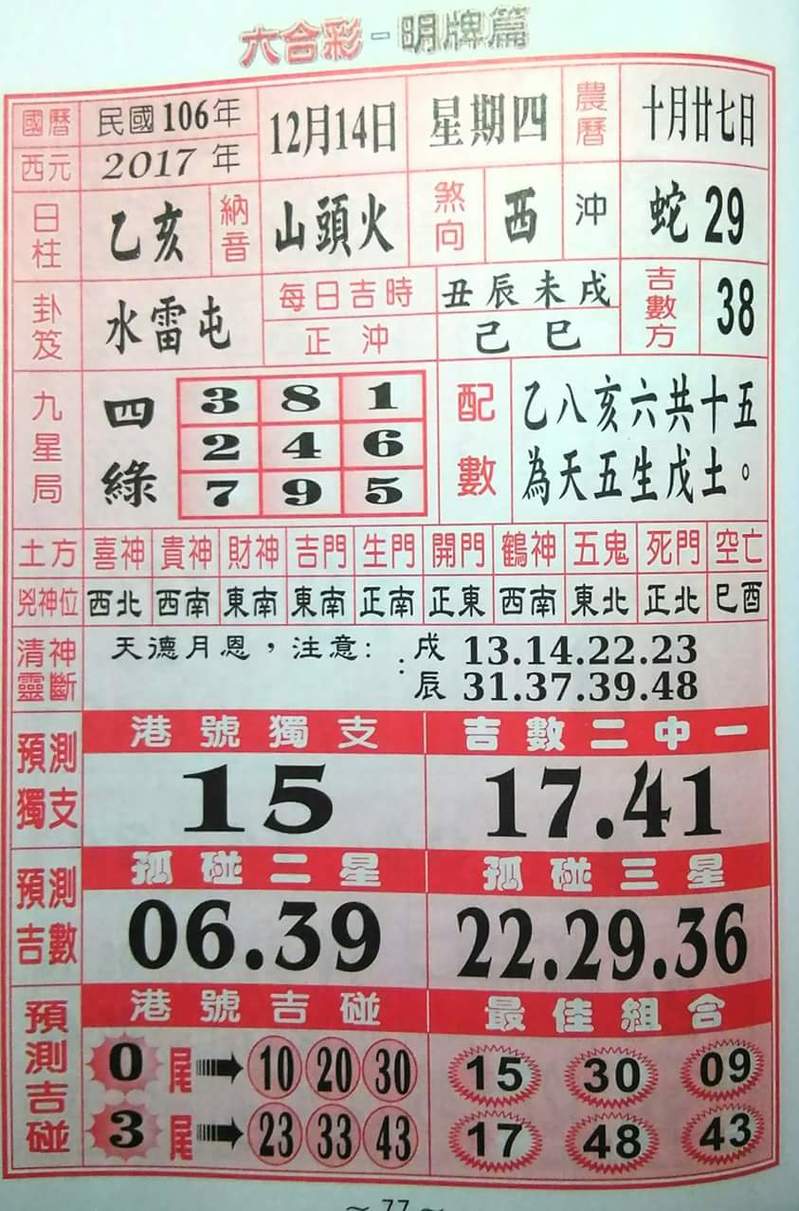 六合彩-明牌篇
國曆 民國106年 12月14日 星期四 農曆 十月廿七日
西元 2017年
日柱 乙亥 納音 山頭火 煞向 西 沖 蛇29
卦笈 水雷屯 每日吉時 丑辰未戌 吉數方 38
正沖 己巳
九星局 四綠 3 8 1 配數 乙八亥六共十五
2 4 6 為天五生戊土。
7 9 5
土方 喜神 貴神 財神 吉門 生門 開門 鶴神 五鬼 死門 空亡
兇神位 西北 西南 東南 東南 正南 正東 西南 東北 正北 巳酉
清神靈斷 天德月恩，注意: : 戌 13.14.22.23
辰 31.37.39.48
預測獨支 港號獨支 吉數二中一
15 17.41
預測吉數 孤碰二星 孤碰三星
06.39 22.29.36
預測吉碰 港號吉碰 最佳組合
0尾 10 20 30 15 30 09
3尾 23 33 43 17 48 43
~ 77 ~